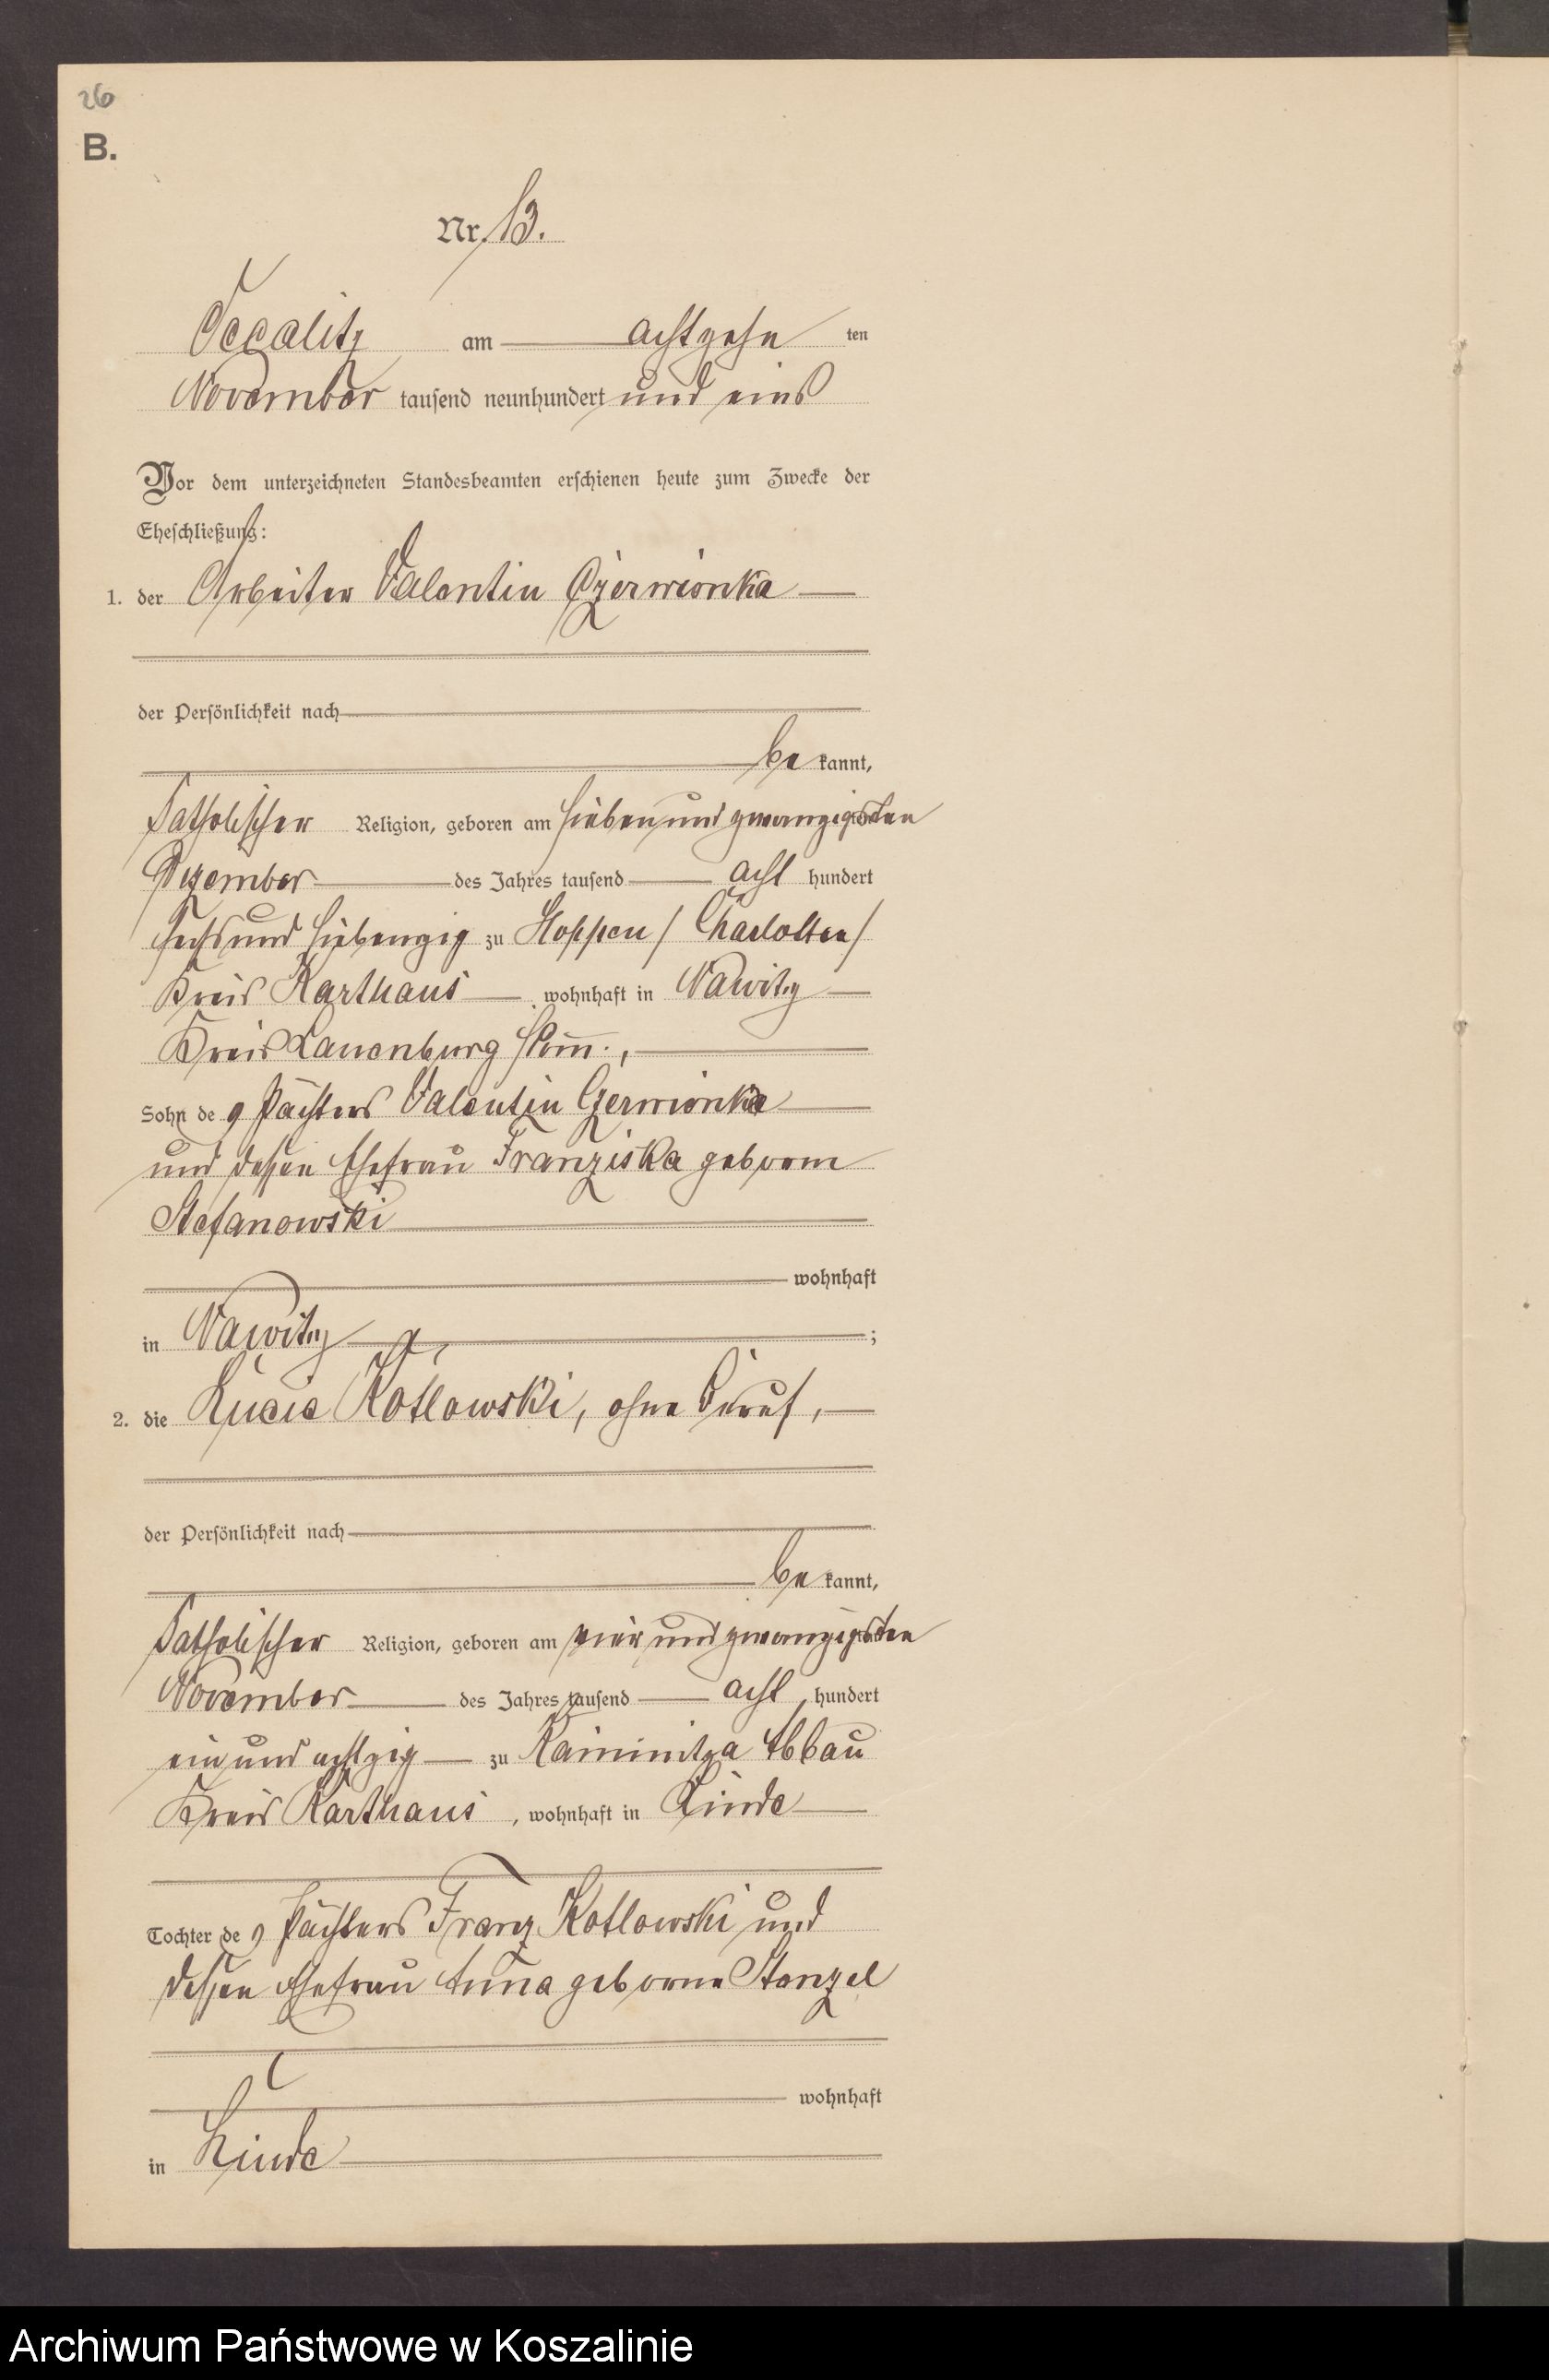 26
B.
Nr. 13.
am achtzehn ten
November tausend neunhundert und eins
Vor dem unterzeichneten Standesbeamten erschienen heute zum Zwecke der
Eheschließung:
1. der Arbeiter Valentin Czerwionka
der Persönlichkeit nach
be kannt,
katholischer Religion, geboren am sieben und zwanzigsten
Dezember des Jahres tausend acht hundert
sechs und siebenzig zu Hoppen / Charlotten /
Kreis Karthaus wohnhaft in Nawitz
Kreis Lauenburg Pom̅.,
Sohn des Pächters Valentin Czerwionka
und dessen Ehefrau Franziska geborne
Stefanowski
wohnhaft
in Nawitz ;
2. die Lucia Kotlowski, ohne Beruf,
der Persönlichkeit nach
be kannt,
katholischer Religion, geboren am vier und zwanzigsten
November des Jahres tausend acht hundert
ein und achtzig zu Kaminitza Abbau
Kreis Karthaus, wohnhaft in Linde
Tochter des Pächters Franz Kotlowski und
dessen Ehefrau Anna geborne Stenzel
wohnhaft
in Linde
Archiwum Państwowe w Koszalinie